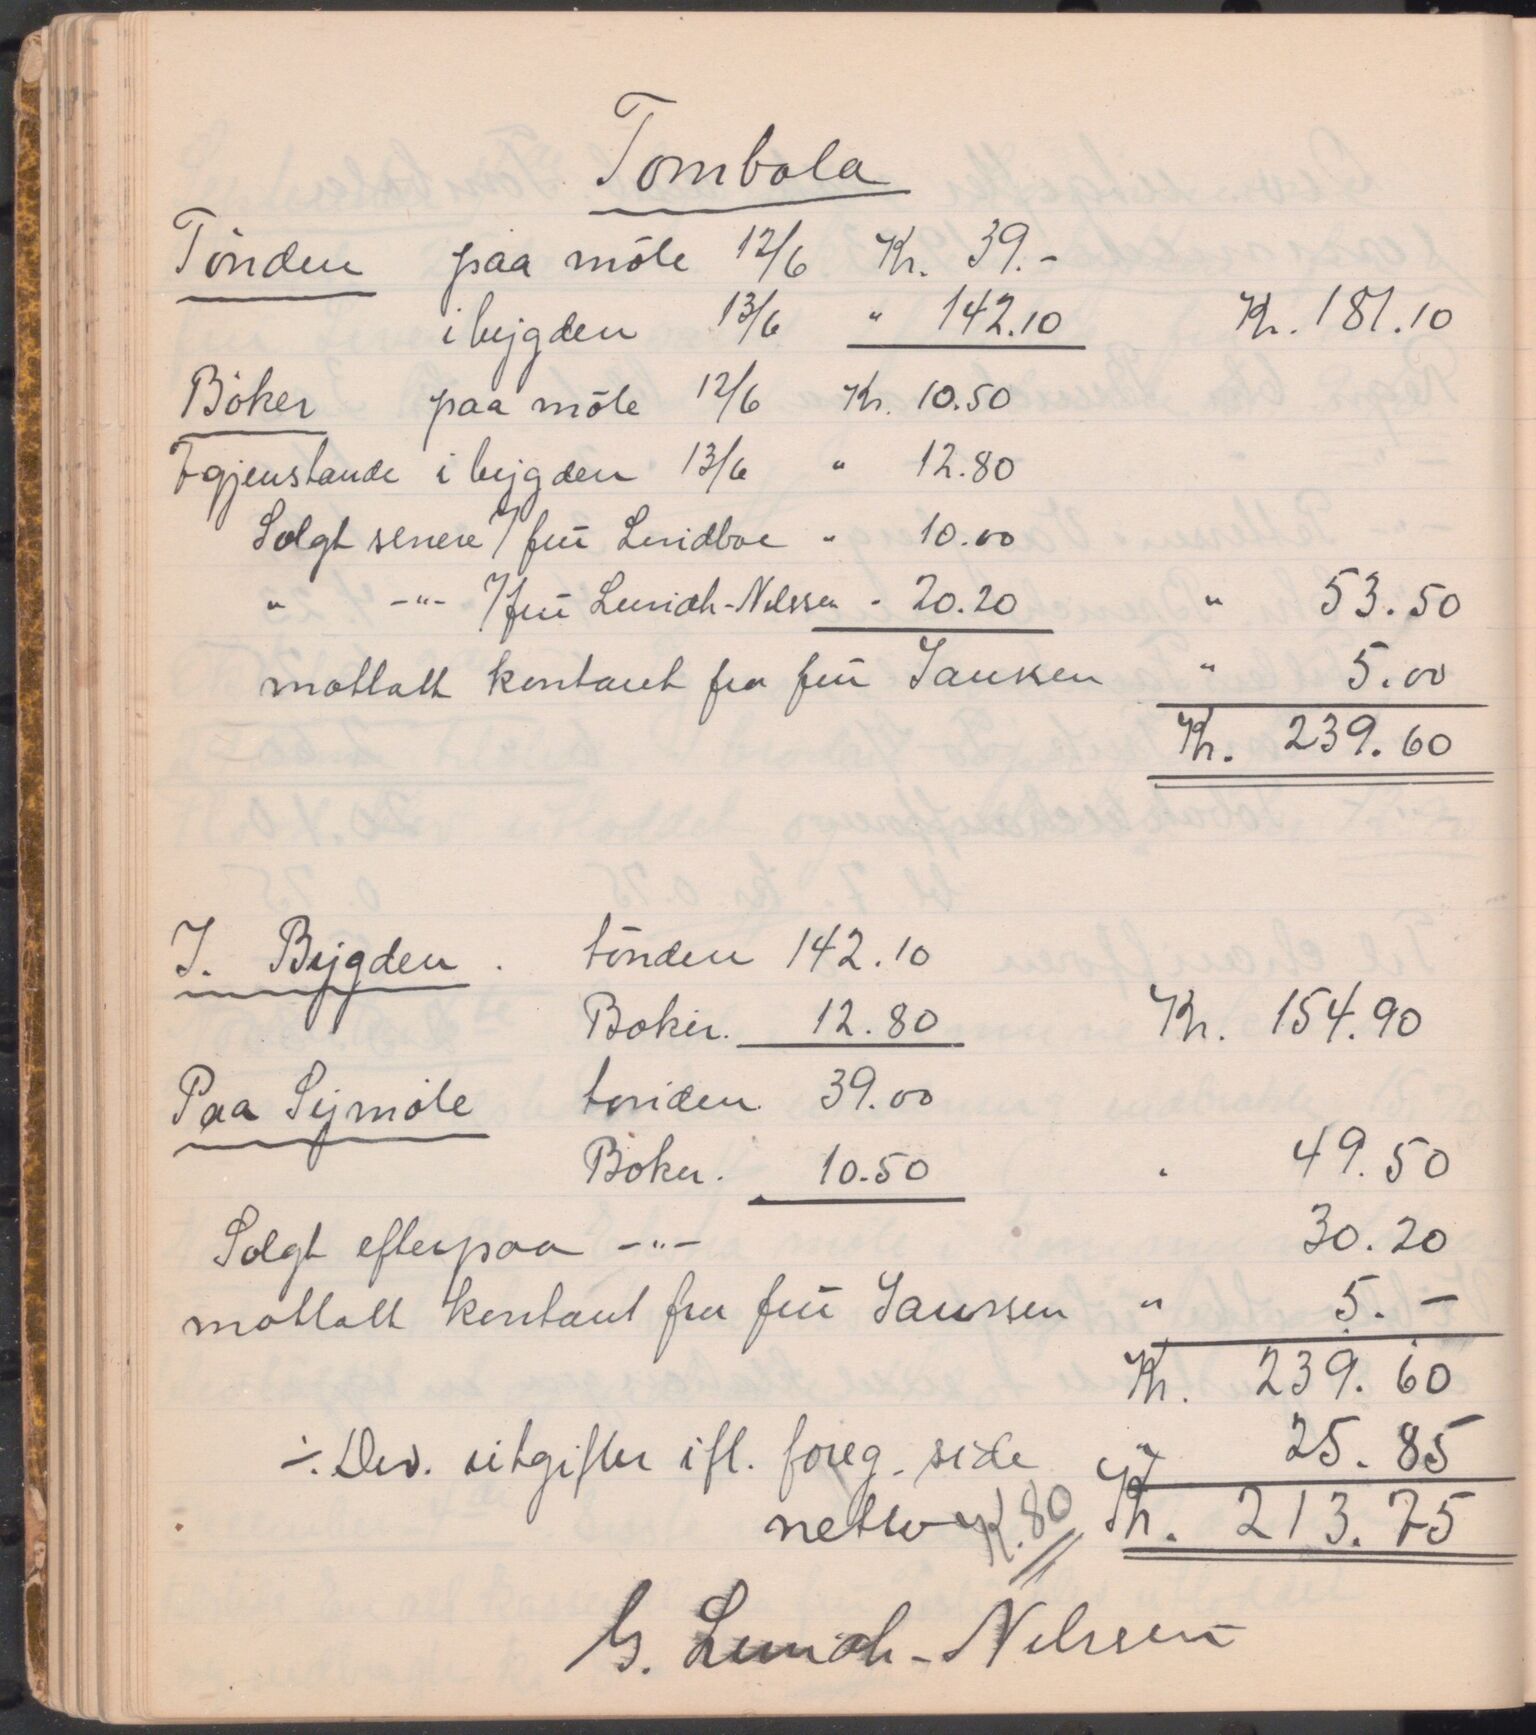 Tombola
Tönden paa möte 12/6 Kr. 39.-
i bygden 13/6 " 142.10 Kr. 181.10
Böker paa möte 12/6 Kr. 10.50
+ gjenstande i bygden 13/6 " 12.80
Solgt senere / frü Lundboe " 10.00
" -"- / frü Lunich-Nilssen " 20.20 " 53.50
mottatt kontant fra frü Janssen " 5.00
Kr. 239.60
I. Bygden. tönden 142.10
Böker. 12.80 Kr. 154.90
Paa Symöte tonden 39.00
Böker. 10.50 " 49.50
Solgt efterpaa -"- 30.20
mottatt kontant fra frü Janssen " 5.-
Kr. 239.60
÷ Div. utgifter ifl. foreg. side " 25.85
netto K. 80 Kr. 213.75
G. Lunich-Nilssen